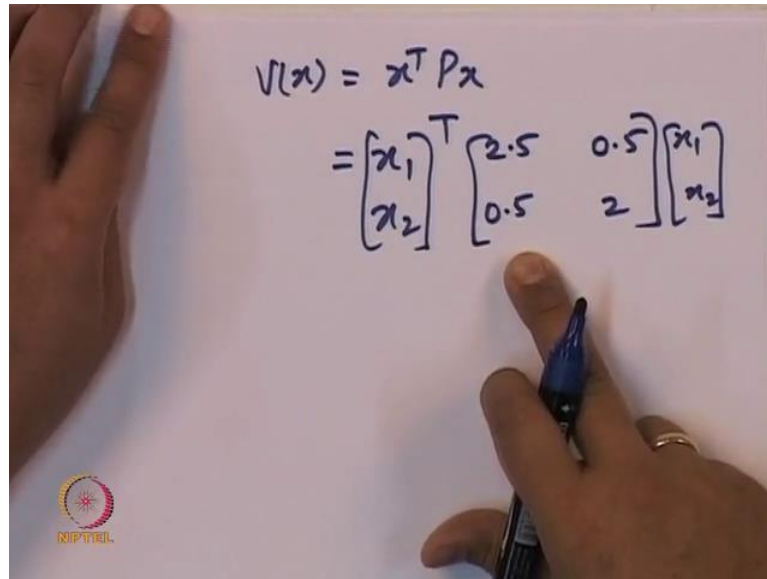 V(x) = xᵀ Px
= [x₁ x₂]ᵀ [2.5 0.5
0.5 2] [x₁ x₂]
NPTEL